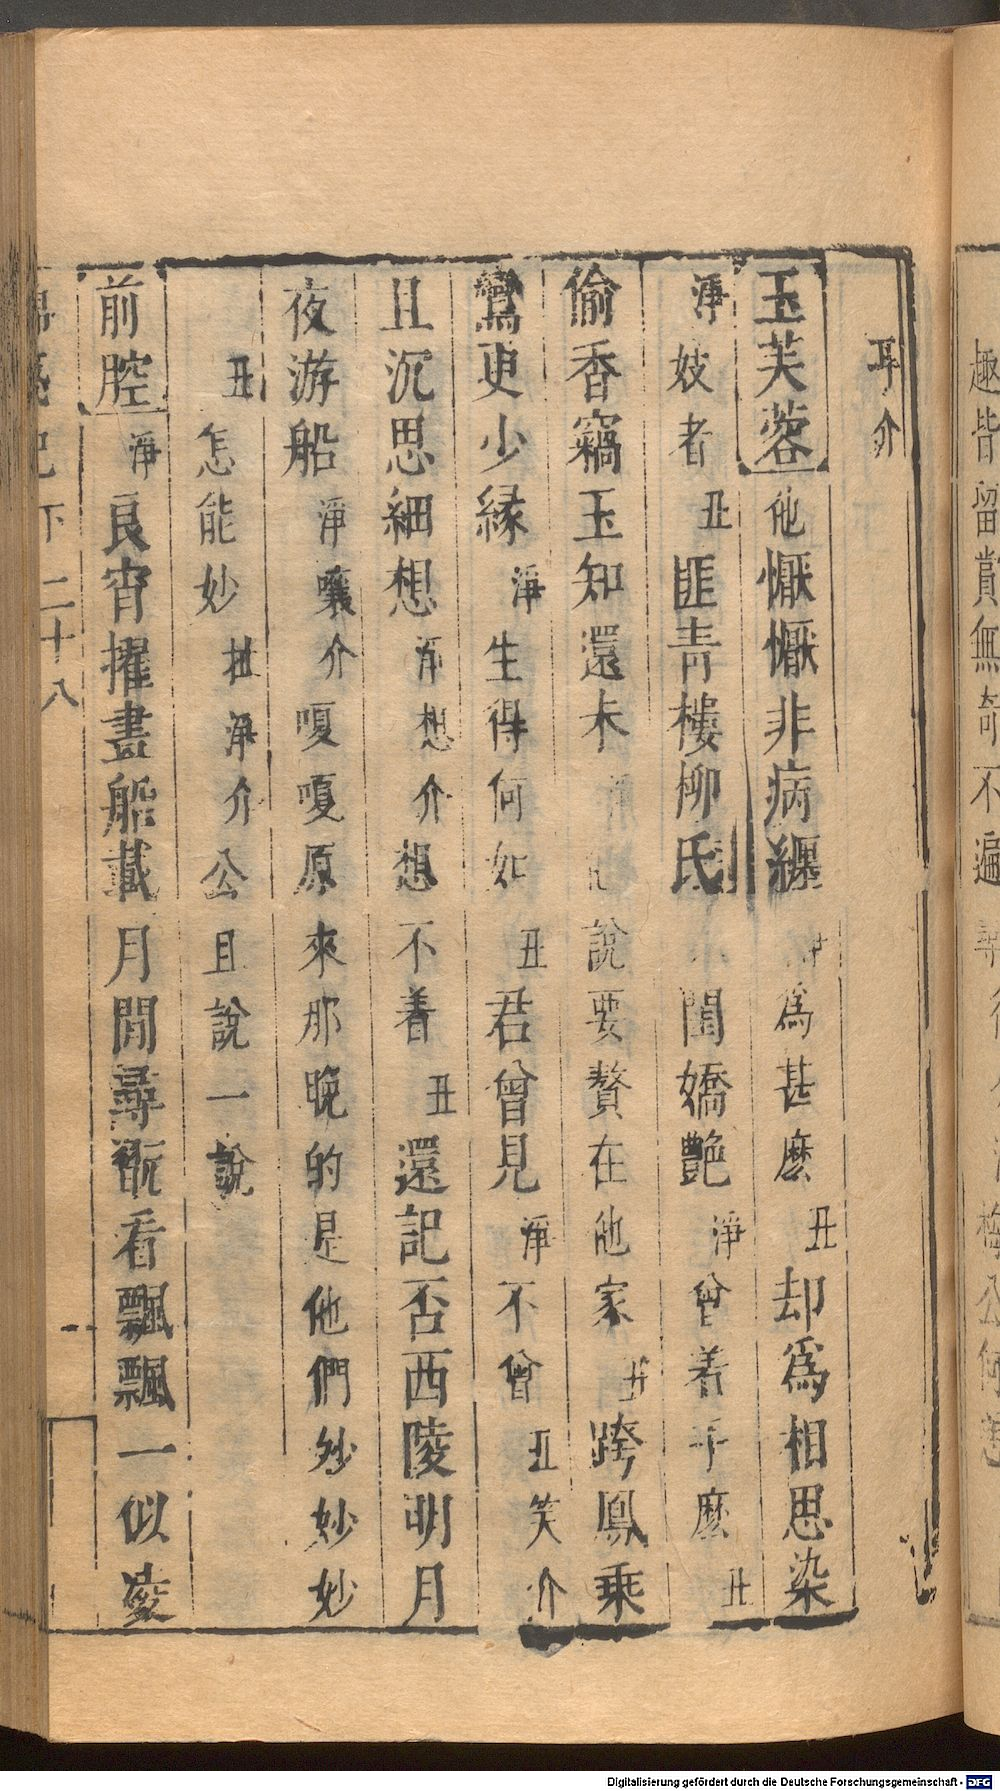 趣皆留賞無奇不遍
耳介
玉芙蓉他懨懨非病纏為甚麽丑却為相思染
淨妓者丑匪青樓柳氏小閨嬌艷淨曾着手麽丑
偷香竊玉知還未淨他說要贅在他家丑跨鳳乘
鸞更少緣淨生得何如丑君曾見淨不曾丑笑介
且沉思細想淨想介想不着丑還記否西陵明月
夜游船淨嚷介嗄嗄原來那晚的是他們妙妙妙
丑怎能妙扯淨介公且說一說
前腔淨良宵擢畫船載月閒尋翫看飄飄一似凌
記下二十八
Digitalisierung gefördert durch die Deutsche Forschungsgemeinschaft - DFG